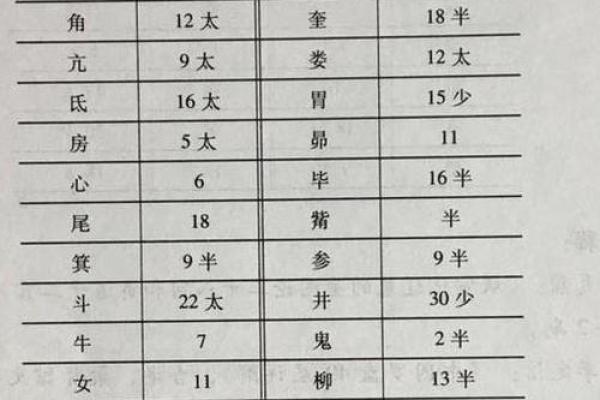 角 12太 奎 18半
亢 9太 娄 12太
氐 16太 胃 15少
房 5太 昴 11
心 6 毕 16半
尾 18 觜 半
箕 9半 参 9半
斗 22太 井 30少
牛 7 鬼 2半
女 11 柳 13半